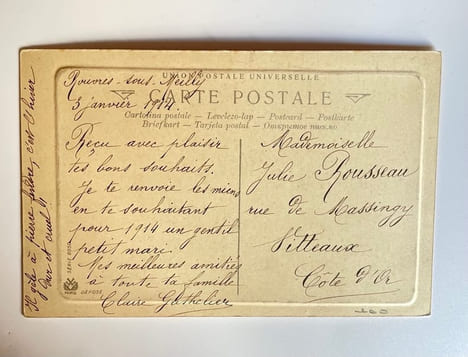 Rouvres-sous-Meilly
3 janvier 1914.
UNION POSTALE UNIVERSELLE
CARTE POSTALE
Cartolina postale – Levelezo-lap – Postcard – Postkarte
Briefkart – Tarjeta postal – Открытое письмо
Reçu avec plaisir
tes bons souhaits.
Je te renvoie les miens
en te souhaitant
pour 1914 un gentil
petit mari.
Mes meilleures amitiés
à toute ta famille
Claire Gathelier
Mademoiselle
Julie Rousseau
rue de Massingy
Vitteaux
Côte d'Or
Il gèle à pierre fendre, c'est l'hiver
dur et cruel
SERIE
DÉPOSÉ